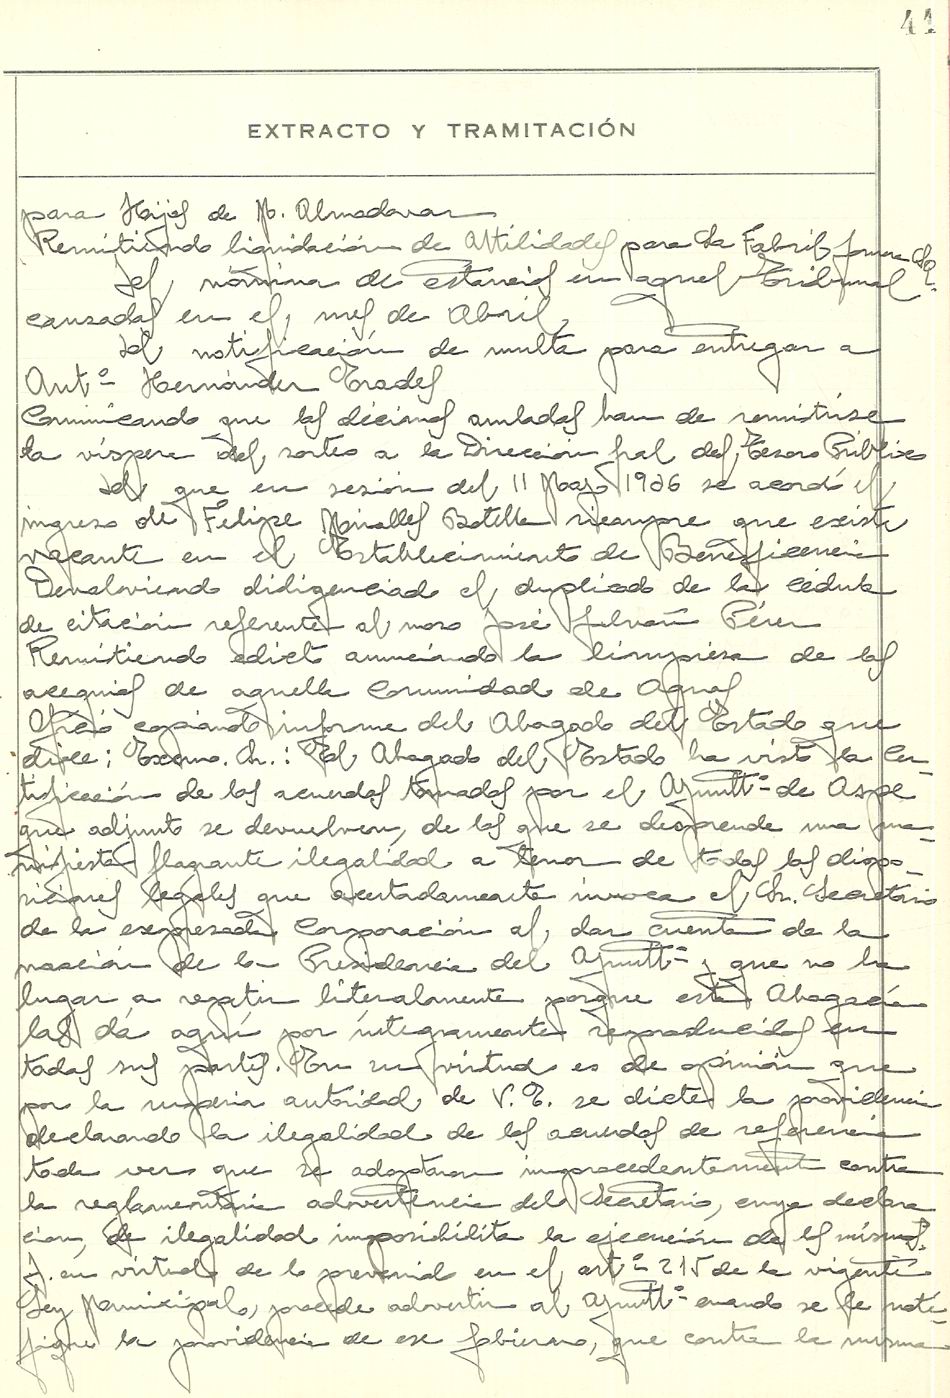 41
EXTRACTO Y TRAMITACIÓN
para Hijos de M. Almodovar
Remitiendo liquidación de Utilidades para La Fabril
Id. nómina de estancias en aquel Tribunal
causadas en el mes de Abril
Id. notificación de multa para entregar a
Antº Hernández Prades
Comunicando que los décimos anulados han de remitirse
la víspera del sorteo a la Dirección gral del Tesoro Público
Id. que en sesión del 11 Mayo 1936 se acordó el
ingreso de Felipe Miralles Botella siempre que exista
vacante en el Establecimiento de Beneficencia
Devolviendo diligenciado el duplicado de la cédula
de citación referente al mozo José Galvañ Pérez
Remitiendo edicto anunciando la limpieza de las
acequias de aquella Comunidad de Aguas
Oficio copiando informe del Abogado del Estado que
dice: Excmo. Sr.: El Abogado del Estado ha visto la cer-
tificación de los acuerdos tomados por el Ayuntº de Aspe
que adjunto se devuelven, de los que se desprende una ma-
nifiesta flagrante ilegalidad a tenor de todas las dispo-
siciones legales que acertadamente invoca el Sr. Secretario
de la expresada Corporación al dar cuenta de la
moción de la Presidencia del Ayuntº y que no ha
lugar a repetir literalmente porque esta Abogacía
las dá aquí por íntegramente reproducidas en
todas sus partes. En su virtud es de opinión que
por la superior autoridad de V.E. se dicte la providencia
declarando la ilegalidad de los acuerdos de referencia
toda vez que se adoptaron improcedentemente contra
la reglamentaria advertencia del Secretario, cuya declara
cion, de ilegalidad imposibilita la ejecución de los mismos.
Y en virtud de lo prevenido en el artº 215 de la vigente
Ley Municipal, procede advertir al Ayuntº cuando se le noti-
fique la providencia de ese Gobierno, que contra la misma